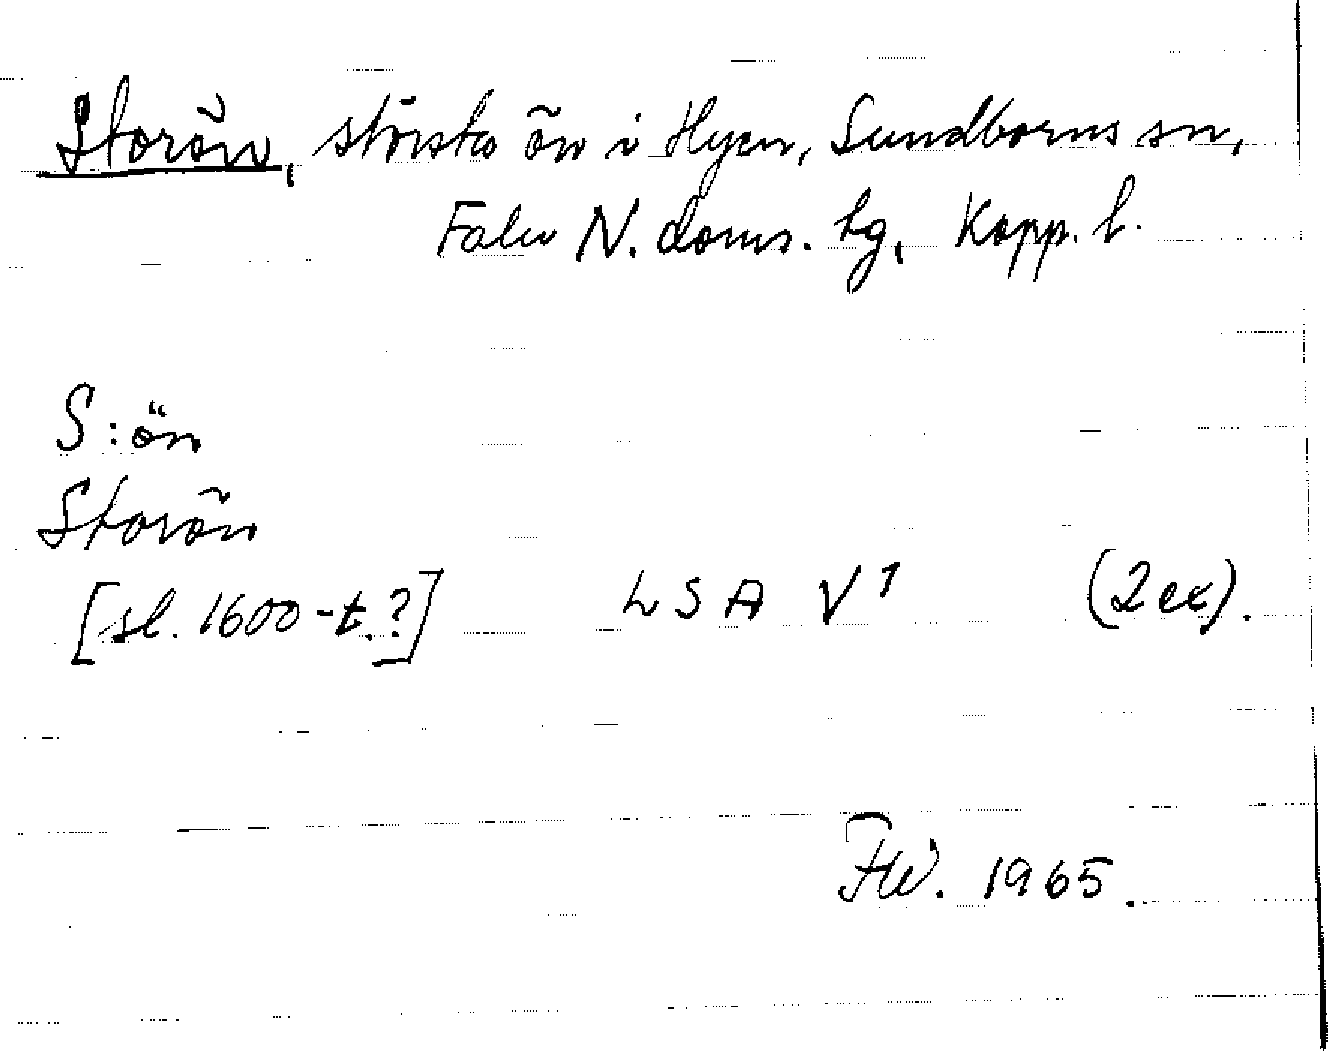 Storön, största ön i Hyen, Sundborns sn,
Falu N. doms. hg, Kopp. l.
S:ön
Storön
[sl. 1600-t.?] LSA V1 (2 ex).
1965.